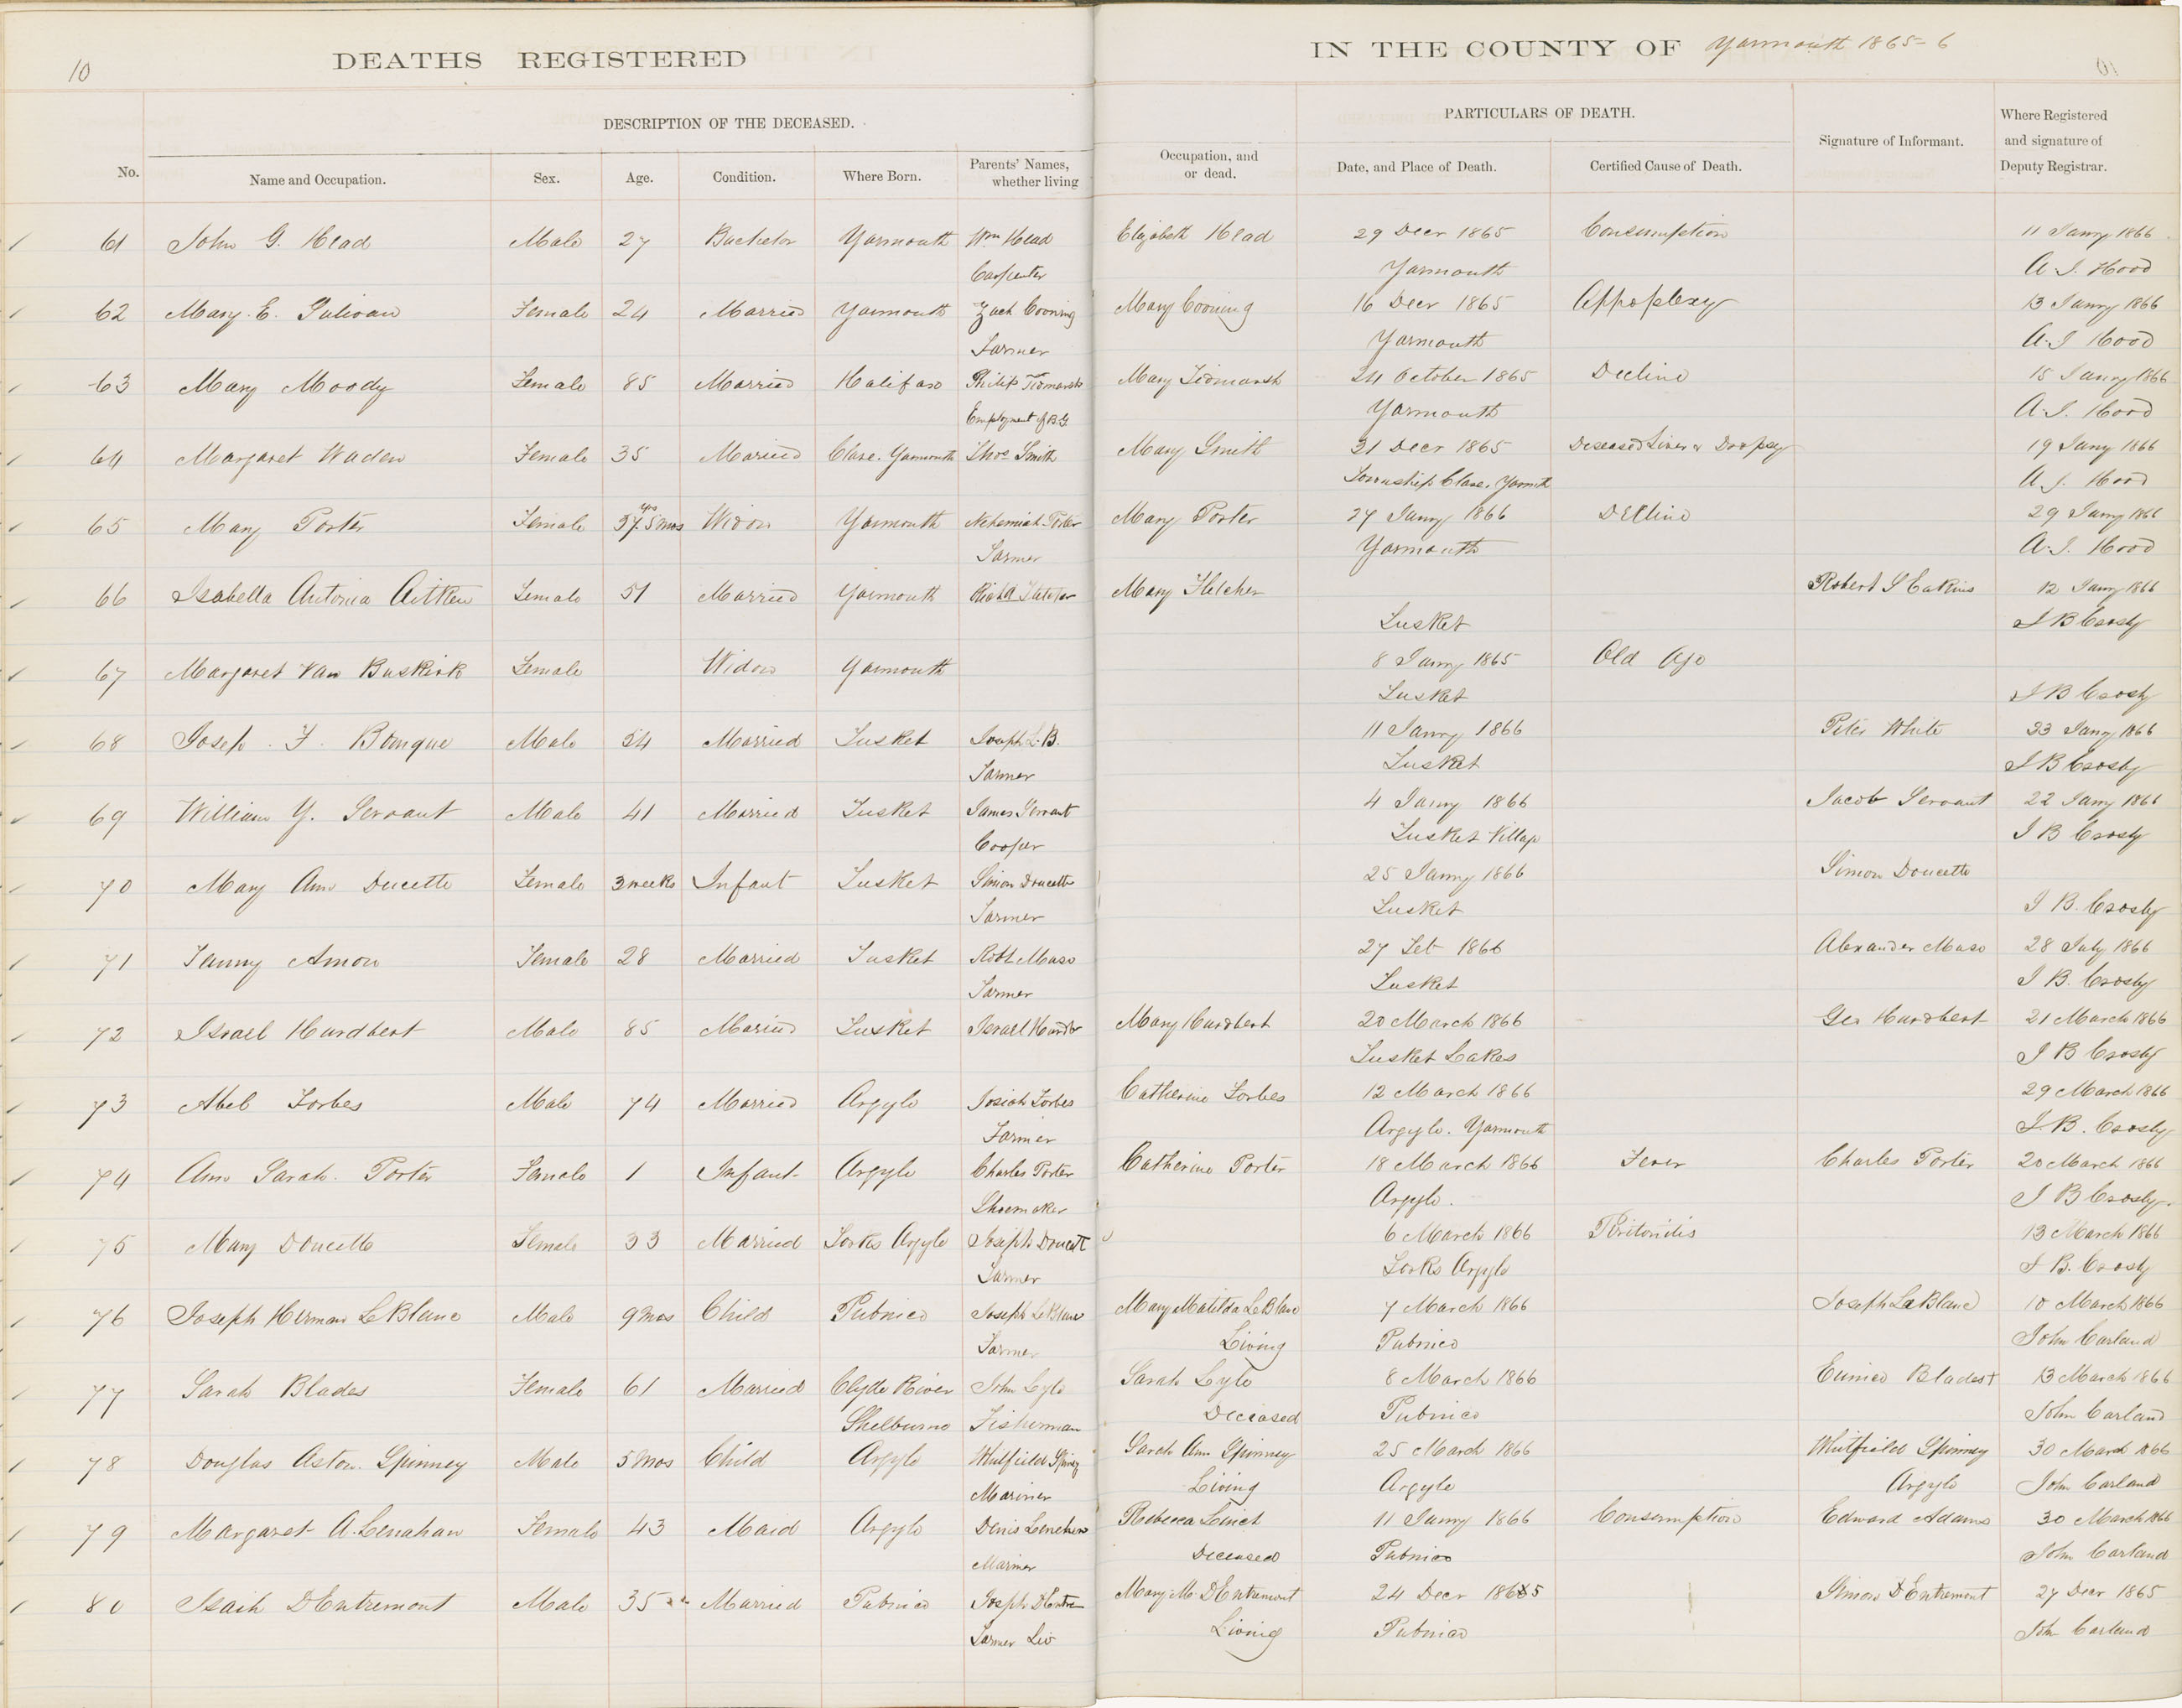 10
DEATHS REGISTERED
IN THE COUNTY OF Yarmouth 1865-6
DESCRIPTION OF THE DECEASED.
PARTICULARS OF DEATH.
No.
Name and Occupation.
Sex.
Age.
Condition.
Where Born.
Parents' Names, whether living
Occupation, and or dead.
Date, and Place of Death.
Certified Cause of Death.
Signature of Informant.
Where Registered and signature of Deputy Registrar.
61 John G. Head Male 27 Bachelor Yarmouth Wm Head Elizabeth Head 29 Decr 1865 Consumption 11 Janry 1866
Carpenter Yarmouth A.J. Hood
62 Mary E. Sulivan Female 24 Married Yarmouth Zach Cooning Mary Cooning 16 Decr 1865 Appoplexy 13 Janry 1866
Farmer Yarmouth A.J Hood
63 Mary Moody Female 85 Married Halifax Philip Tidmarsh Mary Tidmarsh 24 October 1865 Decline 15 Janry 1866
Employment of B.G Yarmouth A.J. Hood
64 Margaret Waden Female 35 Married Clare. Yarmouth Thos Smith Mary Smith 31 Decr 1865 Deseased Liver & Dropsy 19 Jany 1866
Township Clare. Yarmth A.J. Hood
65 Mary Porter Female 57 yrs 5 mos Widow Yarmouth Nehemiah Porter Mary Porter 27 Janry 1866 Decline 29 Janry 1866
Farmer Yarmouth A.J. Hood
66 Isabella Antonia Aitken Female 51 Married Yarmouth Richd Fletcher Mary Fletcher Robert S Eakins 12 Janry 1866
Tusket J B Crosby
67 Margaret Van Buskirk Female Widow Yarmouth 8 Janry 1865 Old Age
Tusket J B Crosby
68 Joseph. F. Bourque Male 34 Married Tusket Joseph L. B. 11 Janry 1866 Peter White 23 Jany 1866
Farmer Tusket J B Crosby
69 William Y. Servant Male 41 Married Tusket James Servant 4 Janry 1866 Jacob Servant 22 Jany 1866
Cooper Tusket Village J B Crosby
70 Mary Ann Ducette Female 3 weeks Infant Tusket Simon Doucette 25 Janry 1866 Simon Doucette
Farmer Tusket J B. Crosby
71 Fanny Amon Female 28 Married Tusket Robt Mase 27 Feb 1866 Alexander Mase 28 July 1866
Farmer Tusket J B. Crosby
72 Israel Hurdbert Male 85 Married Tusket Israel Hurdbt Mary Hurdbert 20 March 1866 Geo Hurdbert 21 March 1866
Tusket Lakes J B Crosby
73 Abel Forbes Male 74 Married Argyle Josiah Forbes Catherine Forbes 12 March 1866 29 March 1866
Farmer Argyle. Yarmouth J. B. Crosby
74 Ann Sarah. Porter Female 1 Infant Argyle Charles Porter Catherine Porter 18 March 1866 Fever Charles Porter 20 March 1866
Shoemaker Argyle. J B Crosby.
75 Mary Doucette Female 33 Married Forks Argyle Joseph Doucett 6 March 1866 Peritonitis 13 March 1866
Farmer Forks Argyle J B. Crosby
76 Joseph Herman LeBlanc Male 9 mos Child Pubnico Joseph LeBlanc Mary Matilda LeBlanc 7 March 1866 Joseph LeBlanc 10 March 1866
Farmer Living Pubnico John Carland
77 Sarah Blades Female 61 Married Clyde River John Lyle Sarah Lyle 8 March 1866 Eunice Blades + 13 March 1866
Shelburne Fisherman Deceased Pubnico John Carland
78 Douglas Aston. Spinney Male 5 mos Child Argyle Whitfield Spiney Sarah Ann Spinney 25 March 1866 Whitfield Spinney 30 March 1866
Mariner Living Argyle Argyle John Carland
79 Margaret A. Lenahan Female 43 Maid Argyle Denis Lenehan Rebecca Linct 11 Janry 1866 Consumption Edward Adams 30 March 1866
Mariner Deceased Pubnico John Carland
80 Isaih DEntremont Male 35 Married Pubnico Joseph DEntre Mary M. DEntremont 24 Decr 1865 Simon DEntremont 27 Decr 1865
Farmer Liv Living Pubnico John Carland